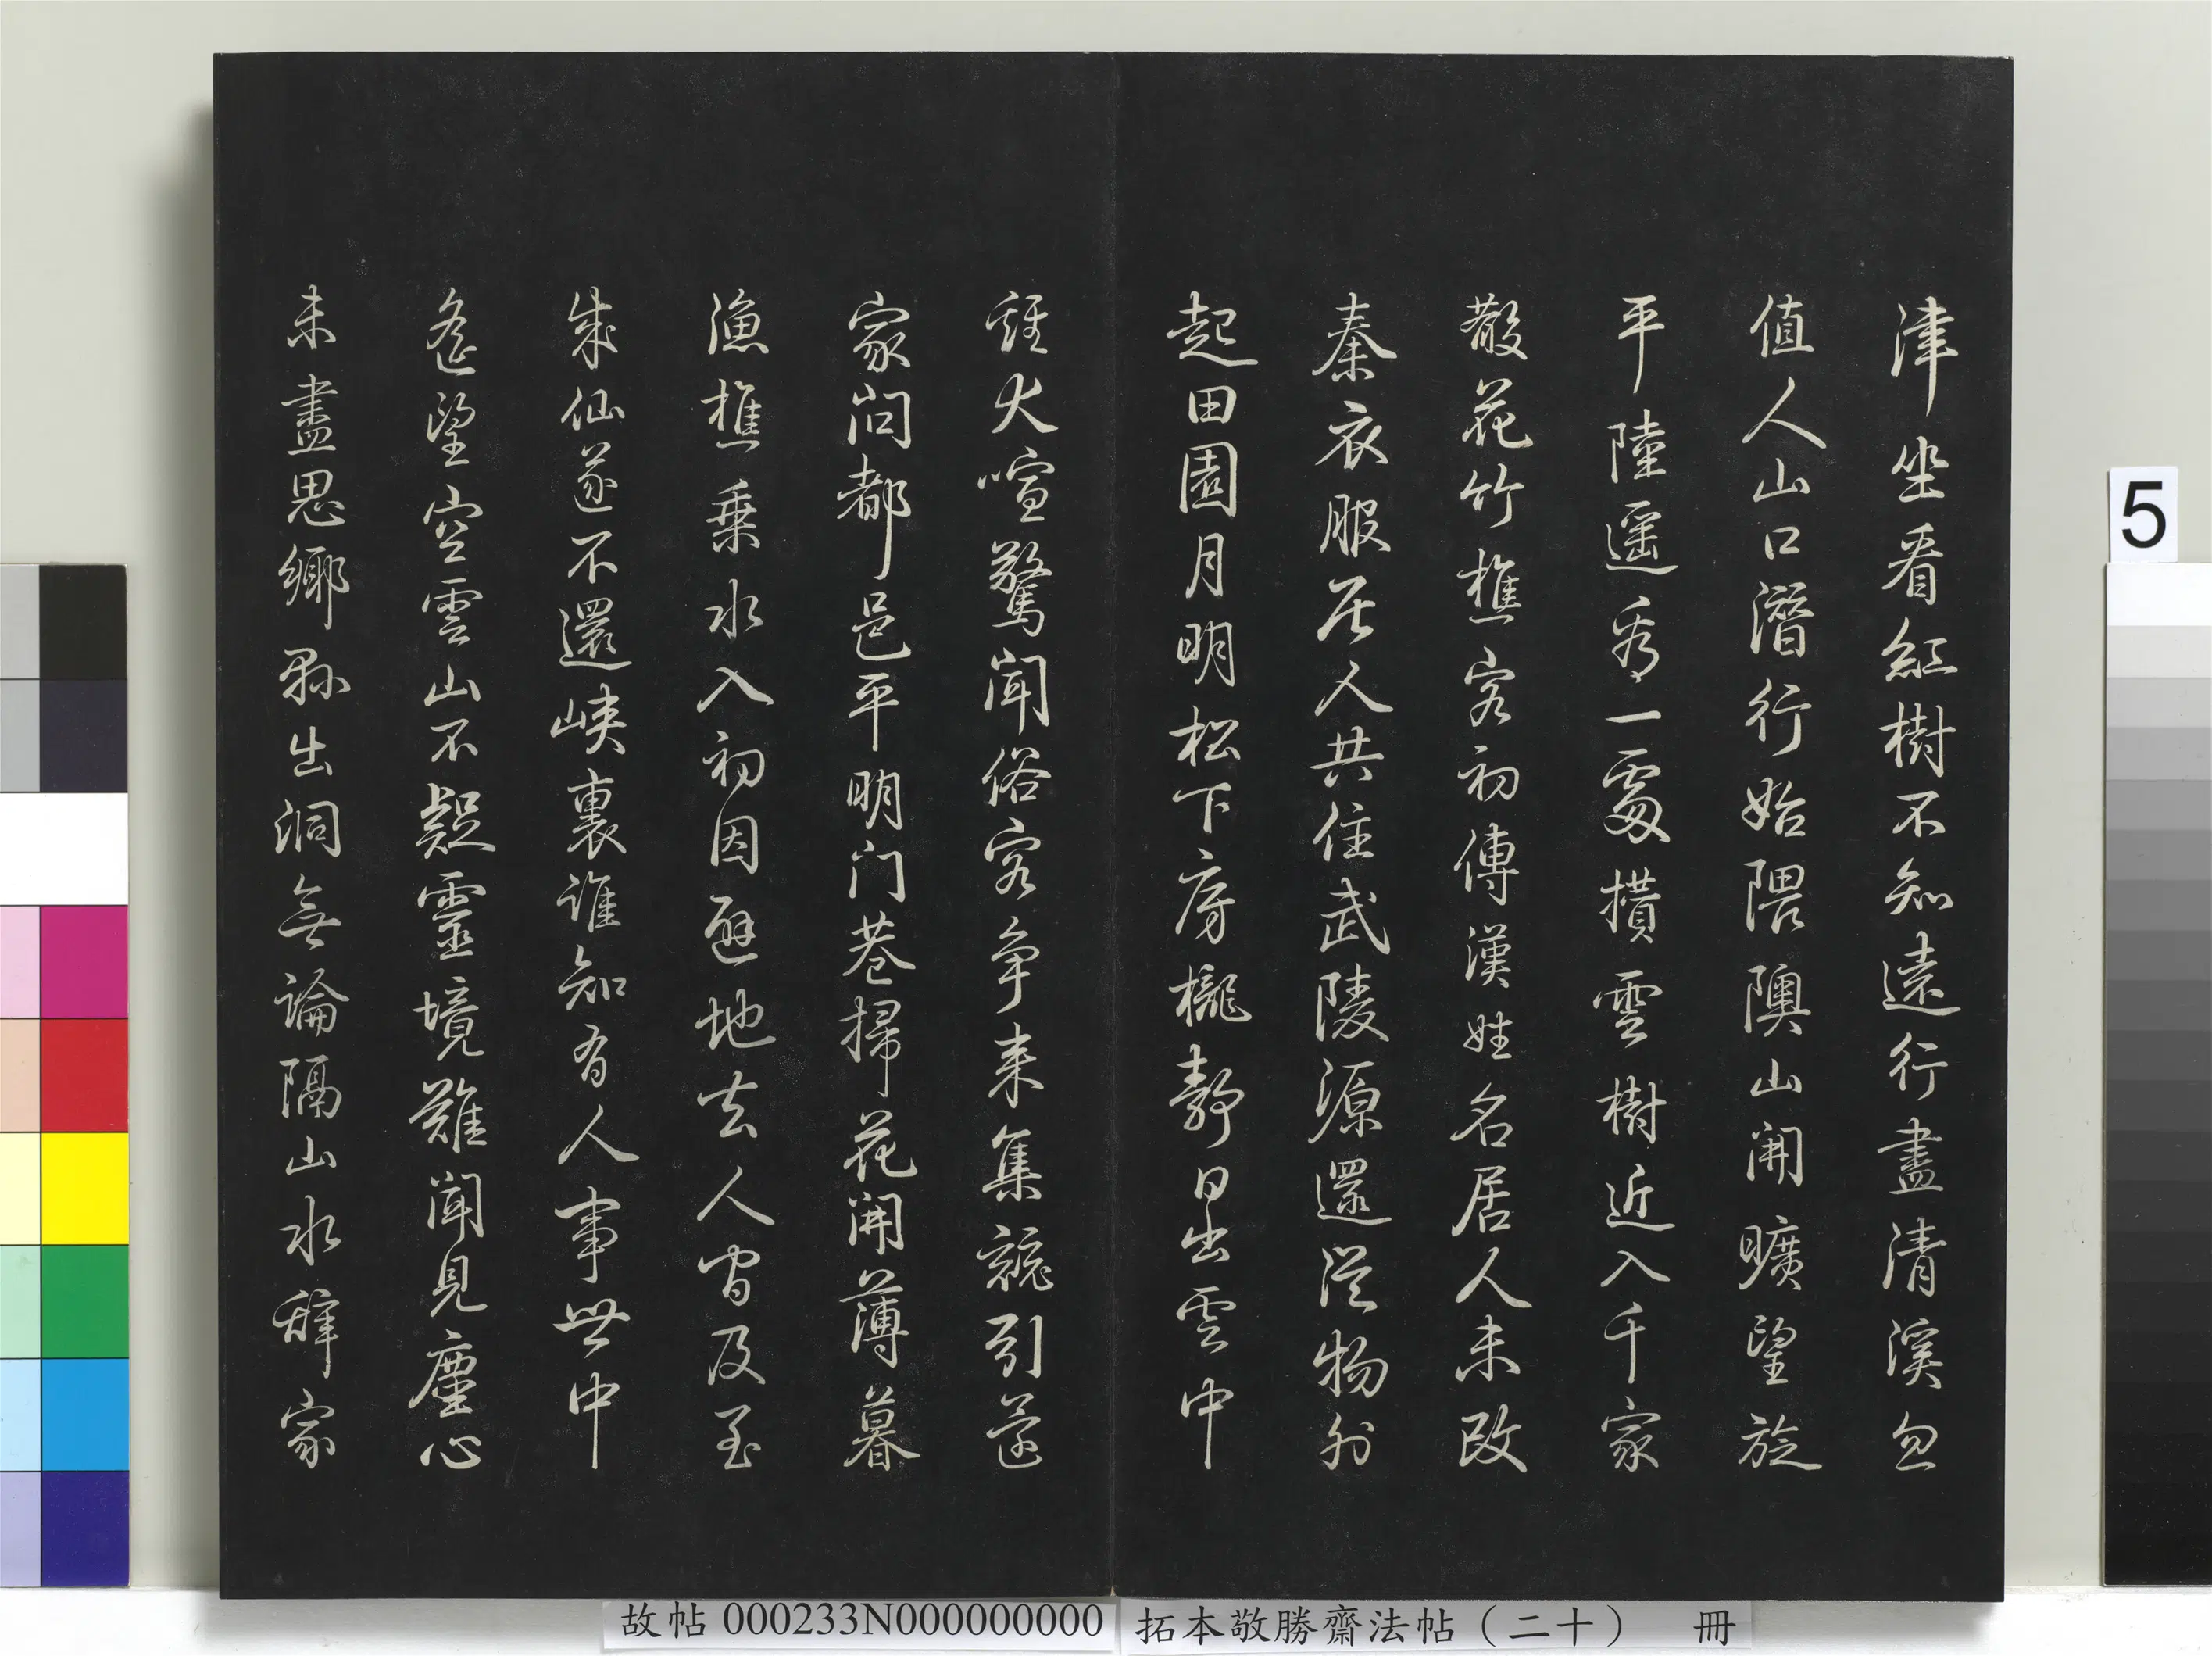 津坐看紅樹不知遠行盡清溪忽
值人山口潛行始隈隩山開曠望旋
平陸遥看一處攢雲樹近入千家
散花竹樵客初傳漢姓名居人未改
秦衣服居人共住武陵源還從物外
起田園月明松下房櫳靜日出雲中
雞犬喧驚聞俗客争来集競引還
家問都邑平明門巷掃花開薄暮
漁樵乗水入初因避地去人間及至
成仙遂不還峽裏誰知有人事世中
遙望空雲山不疑靈境難聞見塵心
未盡思鄉縣出洞無論隔山水辭家
5
故帖000233N000000000
拓本敬勝齋法帖（二十） 冊